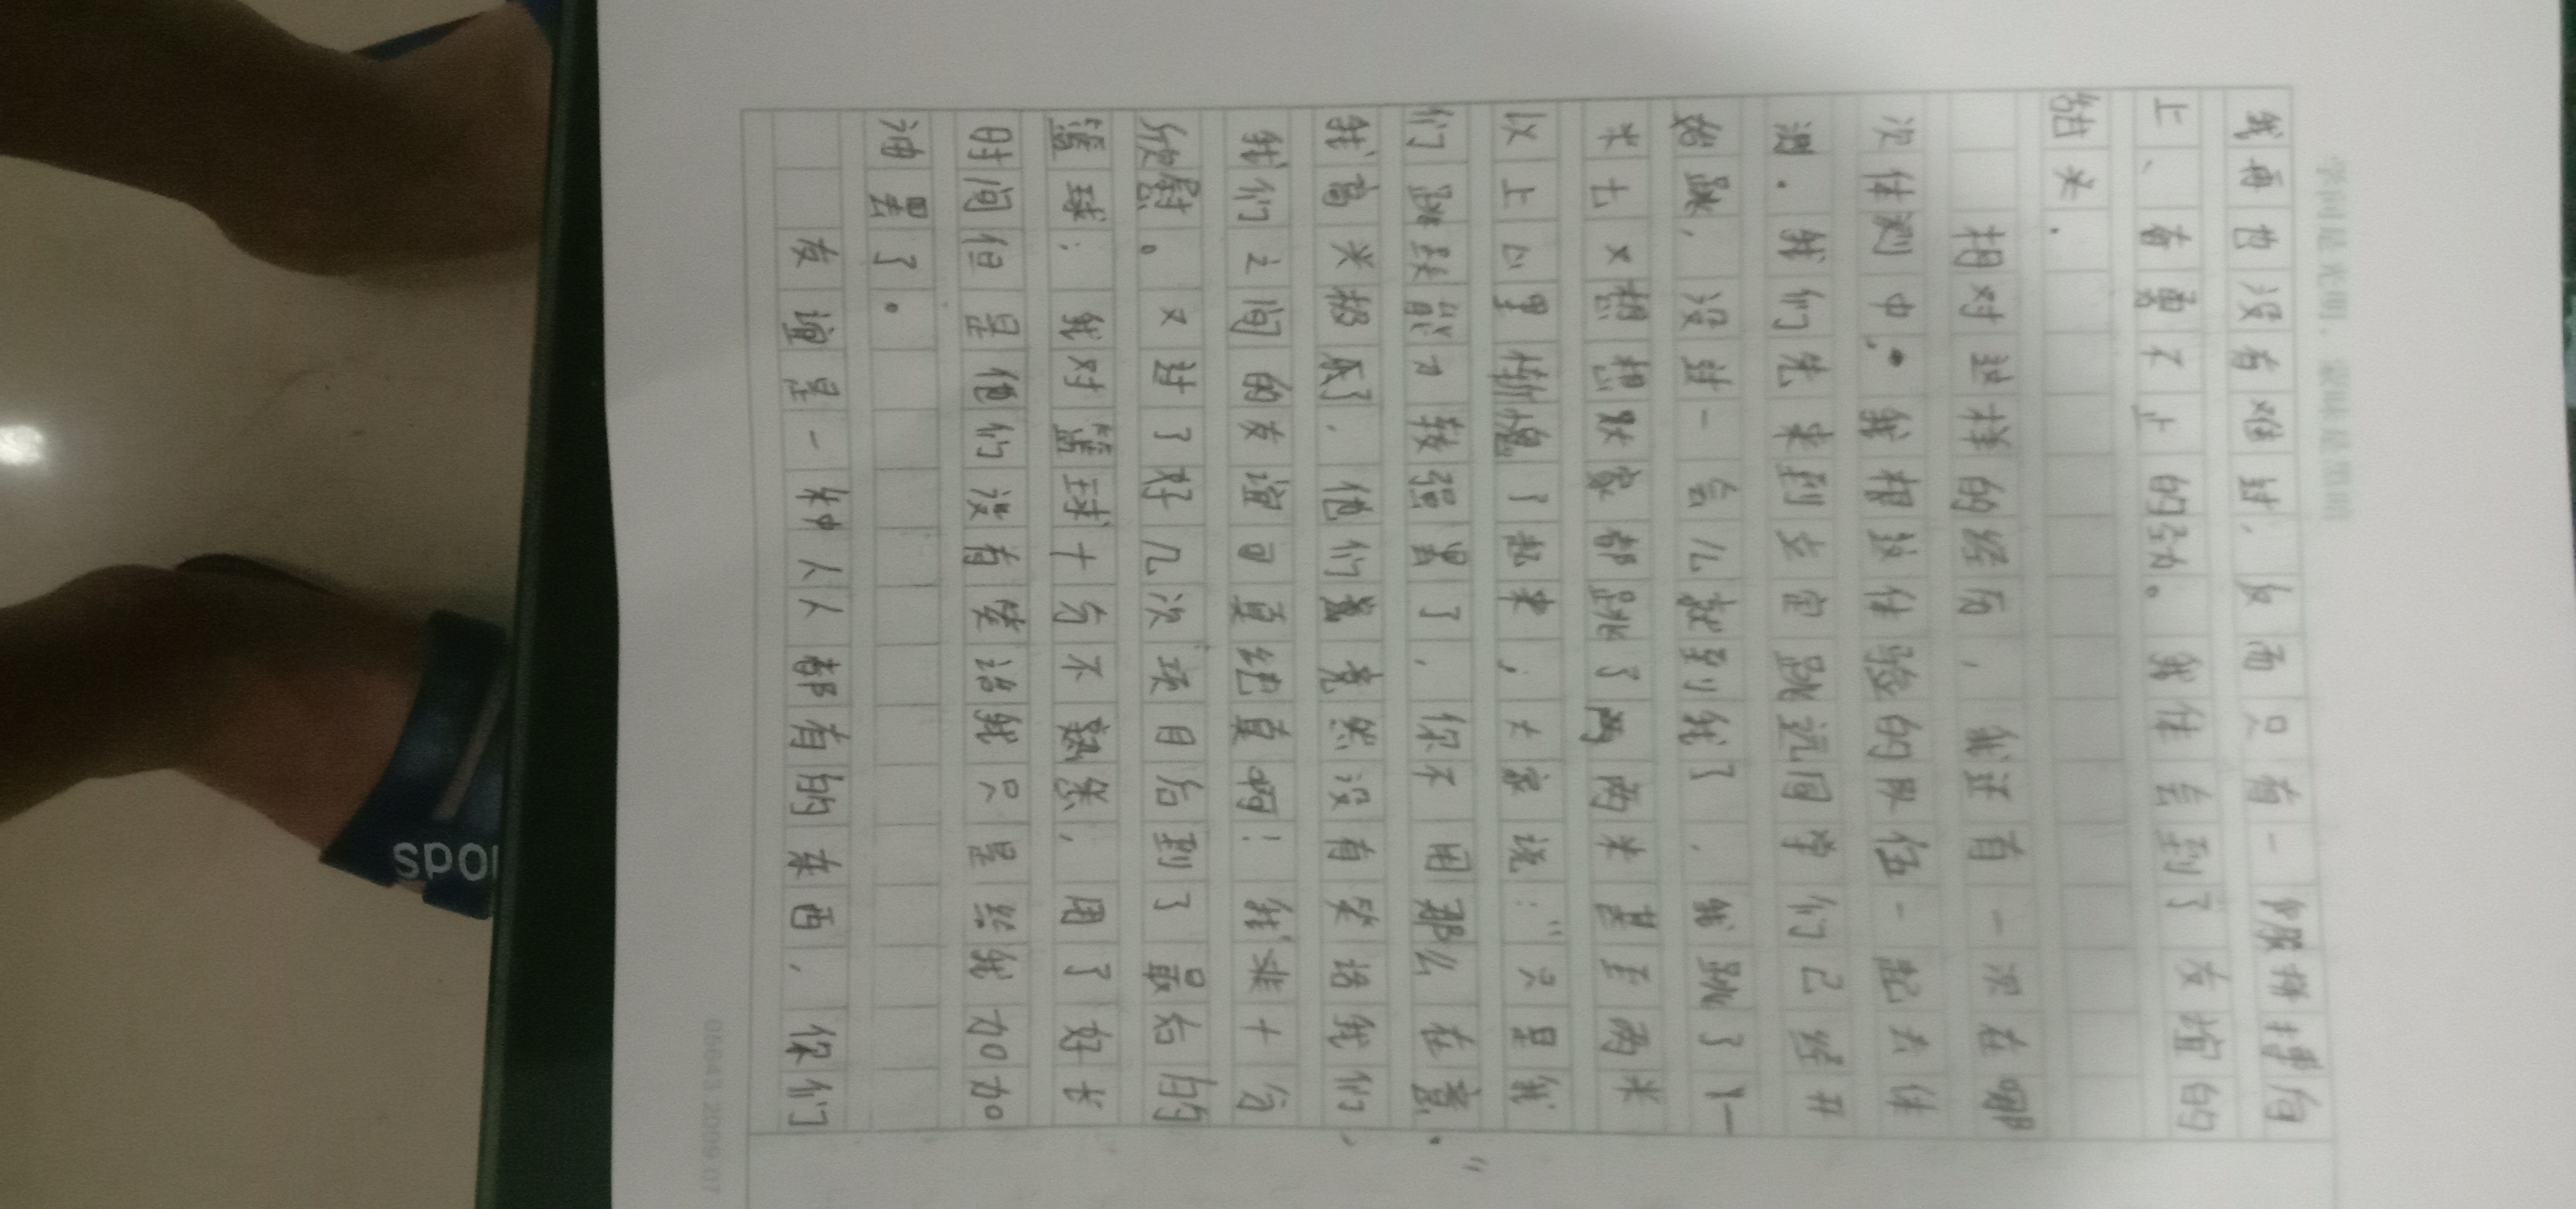 学问是光明，蒙昧是黑暗
我再也没有难过，反而只有一股拼搏向
上、奋勇不止的劲。我体会到了友谊的
钻米.
相对这样的经历，我还有一次在哪
次体测中，我相这体验的队伍一起去体
测.我们先来到立定跳远同学们已经开
始跳，没过一会儿就到我了.我跳了1一
米七又想想默家都跳了两米甚至两米
以上心里惭愧了起来，大家说:"只是我
们跳跃能力较强罢了，你不用那么在意."
我高兴极了.他们竟然没有笑话我们,
我们之间的友谊可真纯真啊!我非十分
欣慰。又过了好几次项目后到了最后的
篮球;我对篮球十分不熟悉，用了好长
时间但是他们没有笑话我只是给我加加
油罢了。
友谊是一种人人都有的东西，你们
05643 2009.07
spo